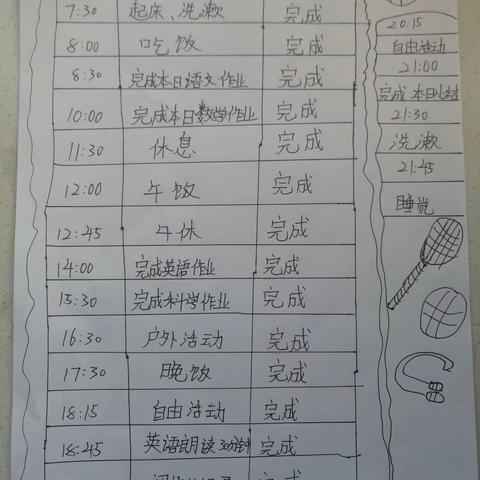 7:30 起床、洗漱 完成
8:00 吃饭 完成
8:30 完成本日语文作业 完成
10:00 完成本日数学作业 完成
11:30 休息 完成
12:00 午饭 完成
12:45 午休 完成
14:00 完成英语作业 完成
15:30 完成科学作业 完成
16:30 户外活动 完成
17:30 晚饭 完成
18:15 自由活动 完成
18:45 英语朗读30分钟 完成
完成
20:15
自由活动
21:00
完成本日小结
21:30
洗漱
21:45
睡觉